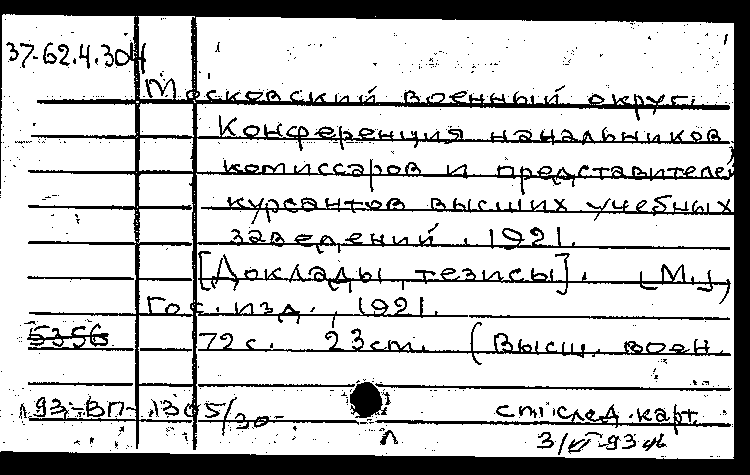 37-62.4.304
Московский военный округ.
Конференция начальников,
комиссаров и представителей
курсантов высших учебных
заведений. 1921.
[Доклады, тезисы]. [М.],
Гос. изд., 1921.
5356 72 с. 23 cm. (Высш. воен.
93-ВП-1305/30-
см след. карт